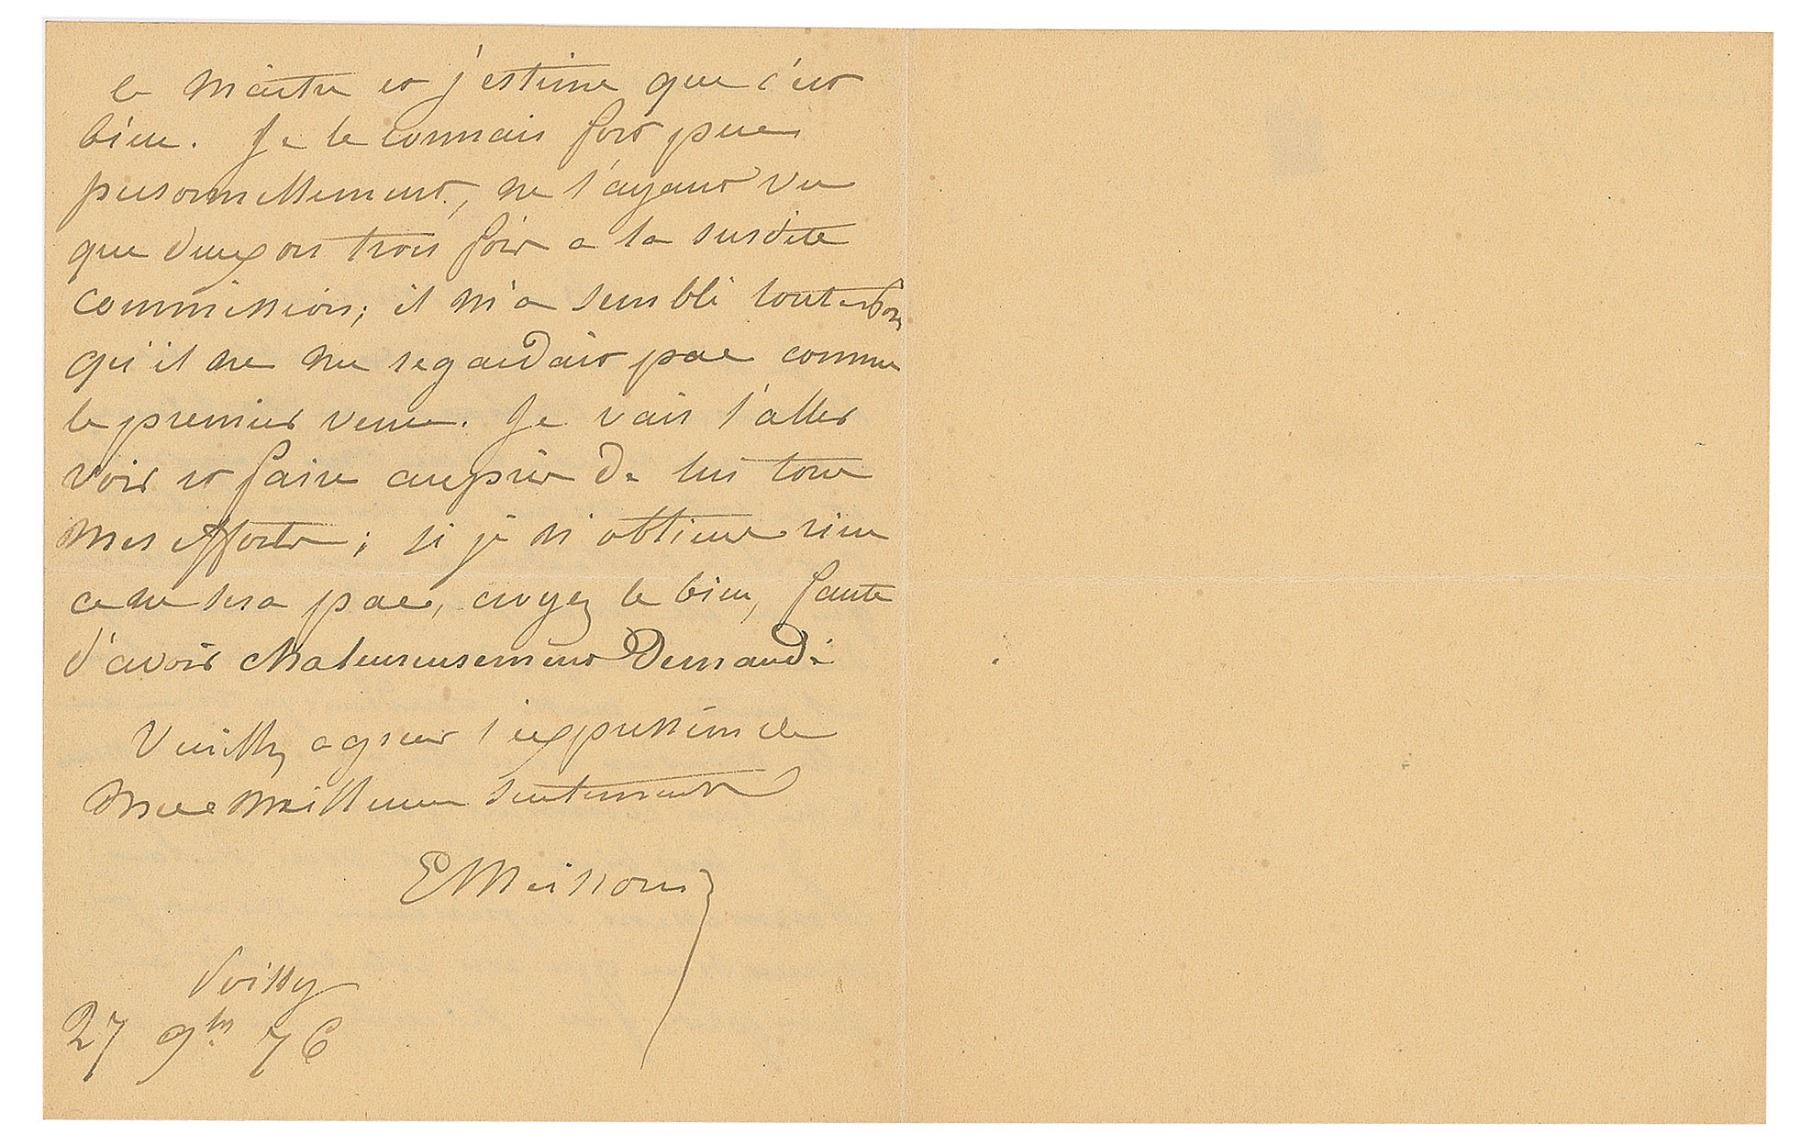 le Maitre et j'estime que c'est
bien. Je le connais fort peu
personnellement, ne l'ayant vu
que deux ou trois fois a la susdite
commission; il m'a semblé toutefois
qu'il ne me regardait pas comme
le premier venu. Je vais l'aller
voir et faire auprès de lui tous
mes efforts; si je n'obtiens rien
ce ne sera pas, croyez le bien, faute
d'avoir chaleureusement demandé
Veuillez agréer l'expression de
mes meilleurs sentiments
EMeissonier
Poissy
27 9bre 76